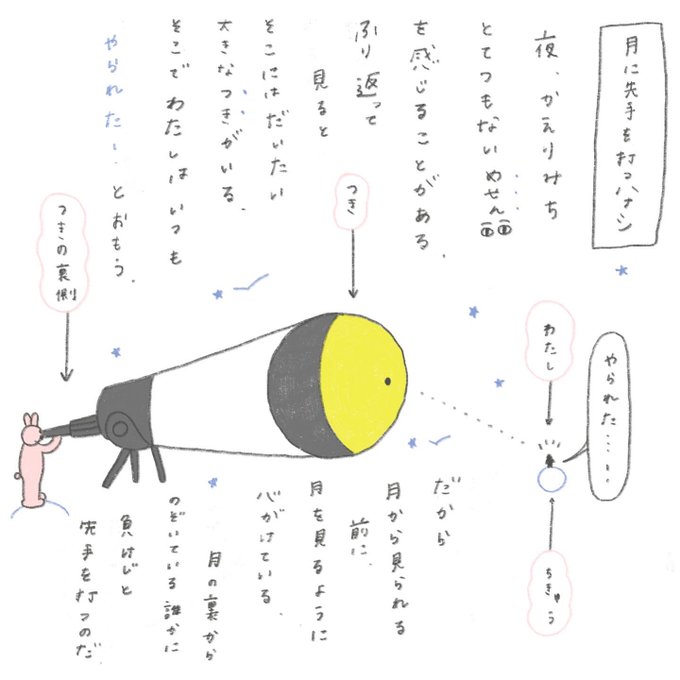 月に先手を打つハナシ
夜、かえりみち
とてつもないめせん
を感じることがある。
ふり返って
見ると
そこにはだいたい
大きなつきがいる。
そこでわたしはいつも
やられた…とおもう。
つき
つきの裏側
わたし
やられた……
ちきゅう
だから
月から見られる
前に、
月を見るように
心がけている。
月の裏から
のぞいている誰かに
負けじと
先手を打つのだ。